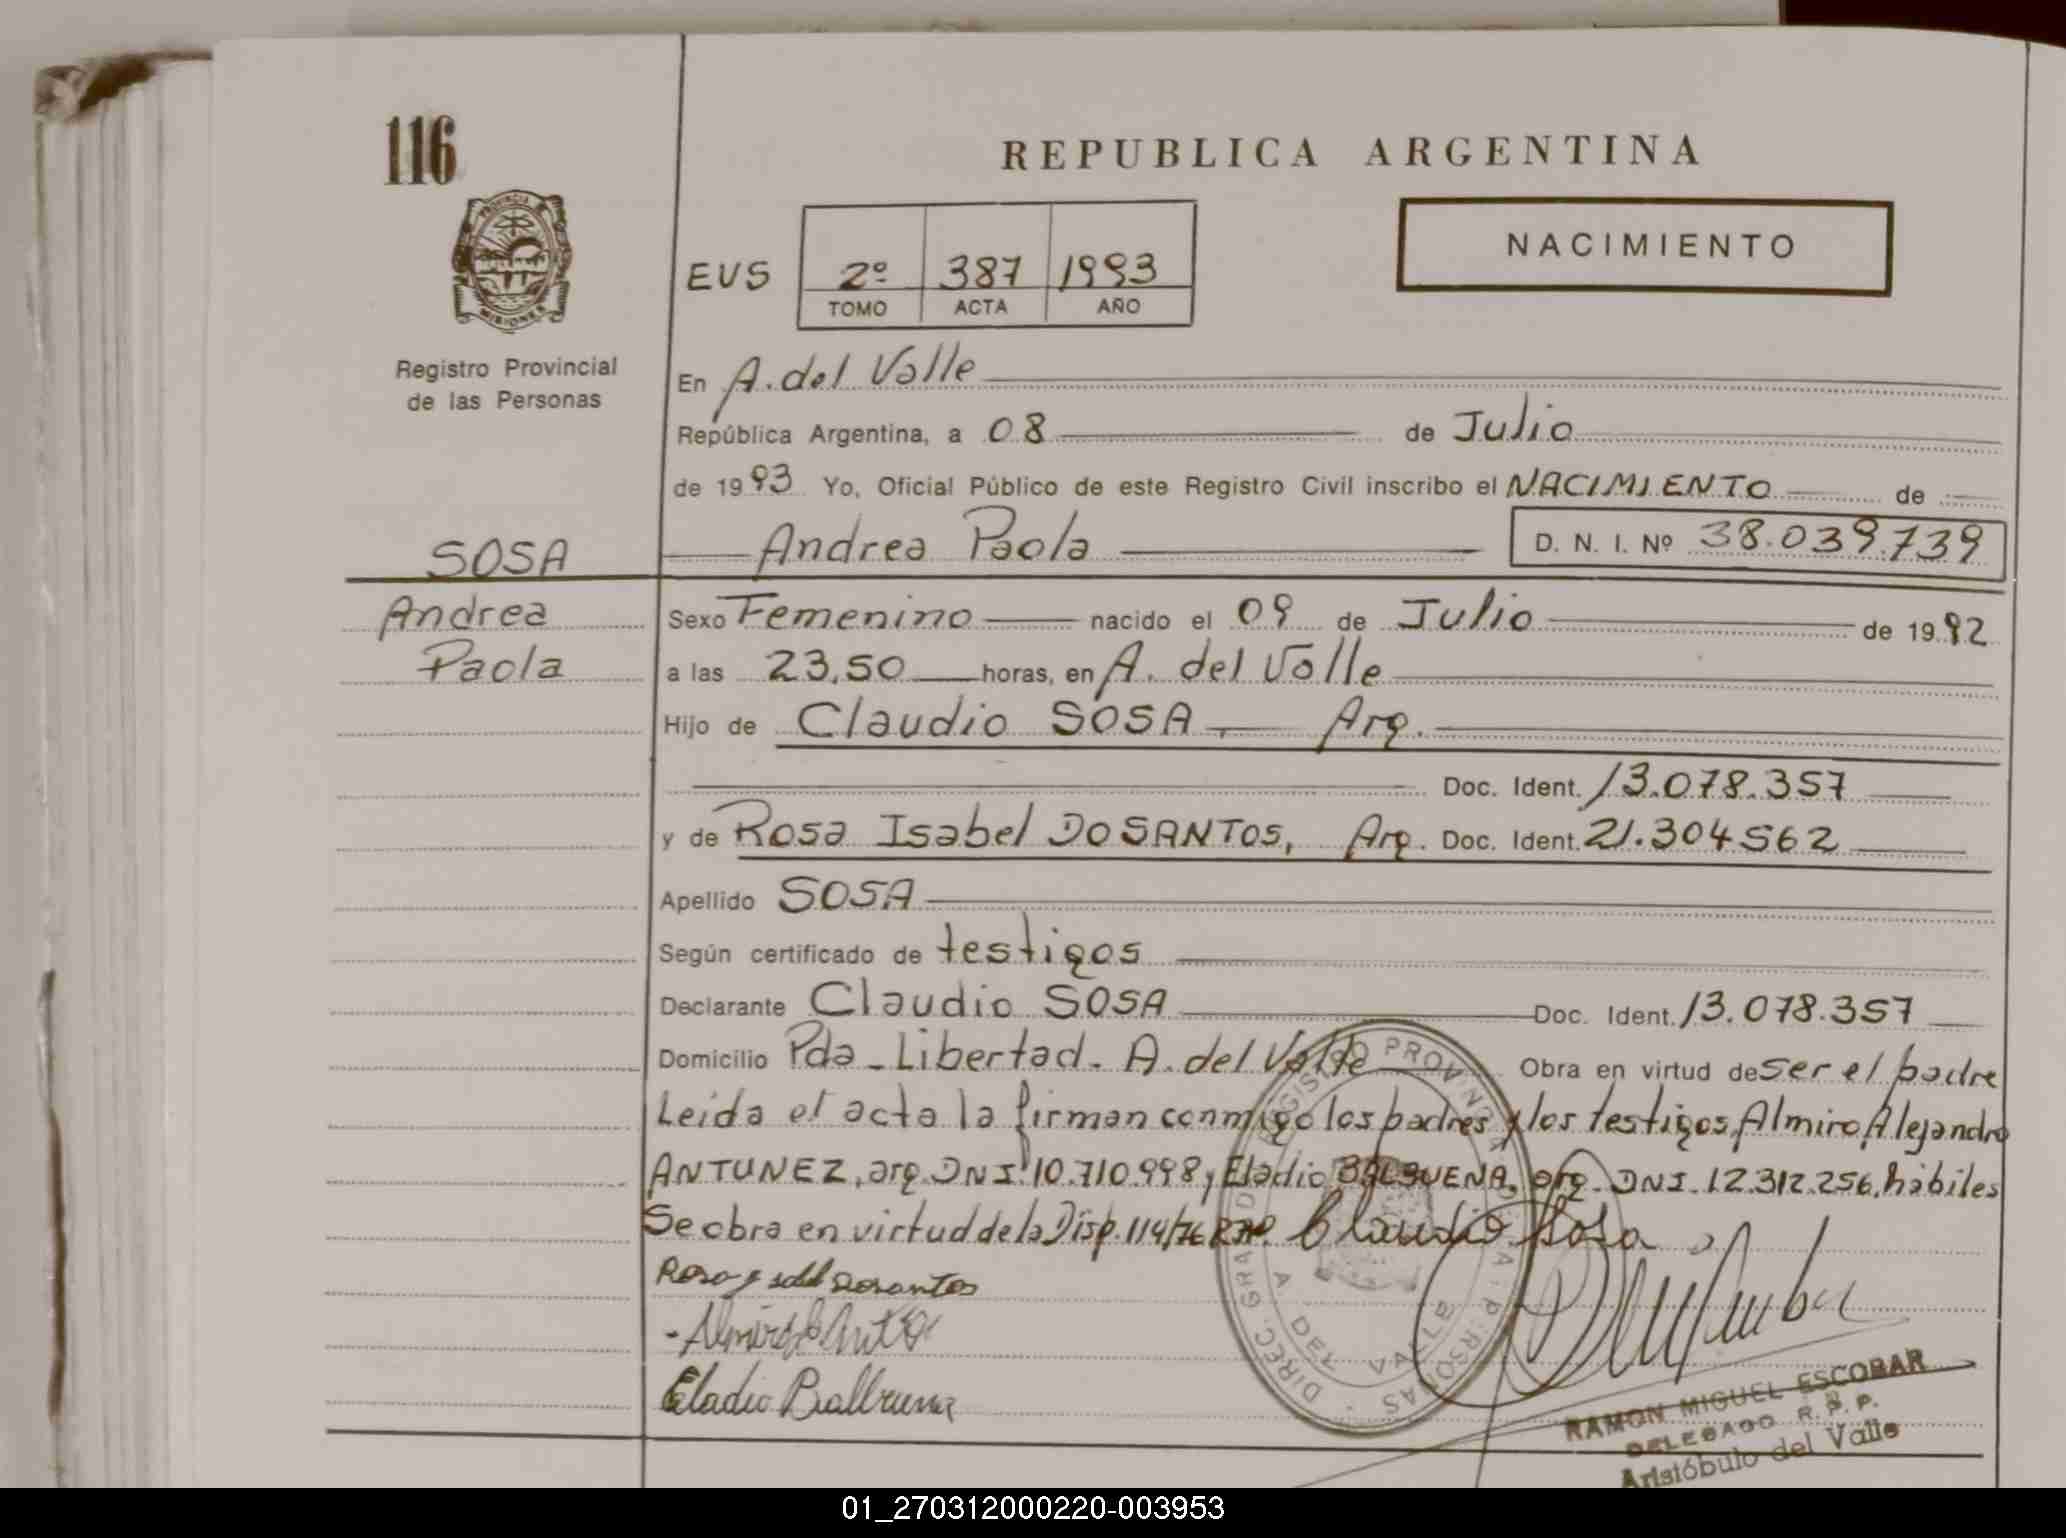 116
REPUBLICA ARGENTINA
PROVINCIA DE
MISIONES
Registro Provincial
de las Personas
EVS
2º 387 1993
TOMO ACTA AÑO
NACIMIENTO
En A. del Valle
República Argentina, a 08 de Julio
de 1993 Yo, Oficial Público de este Registro Civil inscribo el NACIMIENTO de
SOSA
Andrea Paola D. N. I. Nº 38.039.739
Andrea
Paola
Sexo Femenino nacido el 09 de Julio de 1992
a las 23,50 horas, en A. del Valle
Hijo de Claudio SOSA, Arg.
Doc. Ident. 13.078.357
y de Rosa Isabel DOSANTOS, Arg. Doc. Ident. 21.304562
Apellido SOSA
Según certificado de testigos
Declarante Claudio SOSA Doc. Ident. 13.078.357
Domicilio Pda - Libertad - A. del Valle Obra en virtud de ser el padre
Leida el acta la firman conmigo los padres y los testigos, Almiro Alejandro
ANTUNEZ, arg. DNI. 10.710.998, Eladio BALBUENA, arg. DNI. 12.312.256, hábiles
Se obra en virtud de la Disp. 114/76 RPP. Claudio Sosa
Rosa Dosantos
Eladio Balbuena
DIREC. GRAL. DEL REGISTRO PROVINCIAL PERSONAS
A DEL VALLE
RAMON MIGUEL ESCOBAR
DELEGADO R. P. P.
Aristóbulo del Valle
01_270312000220-003953